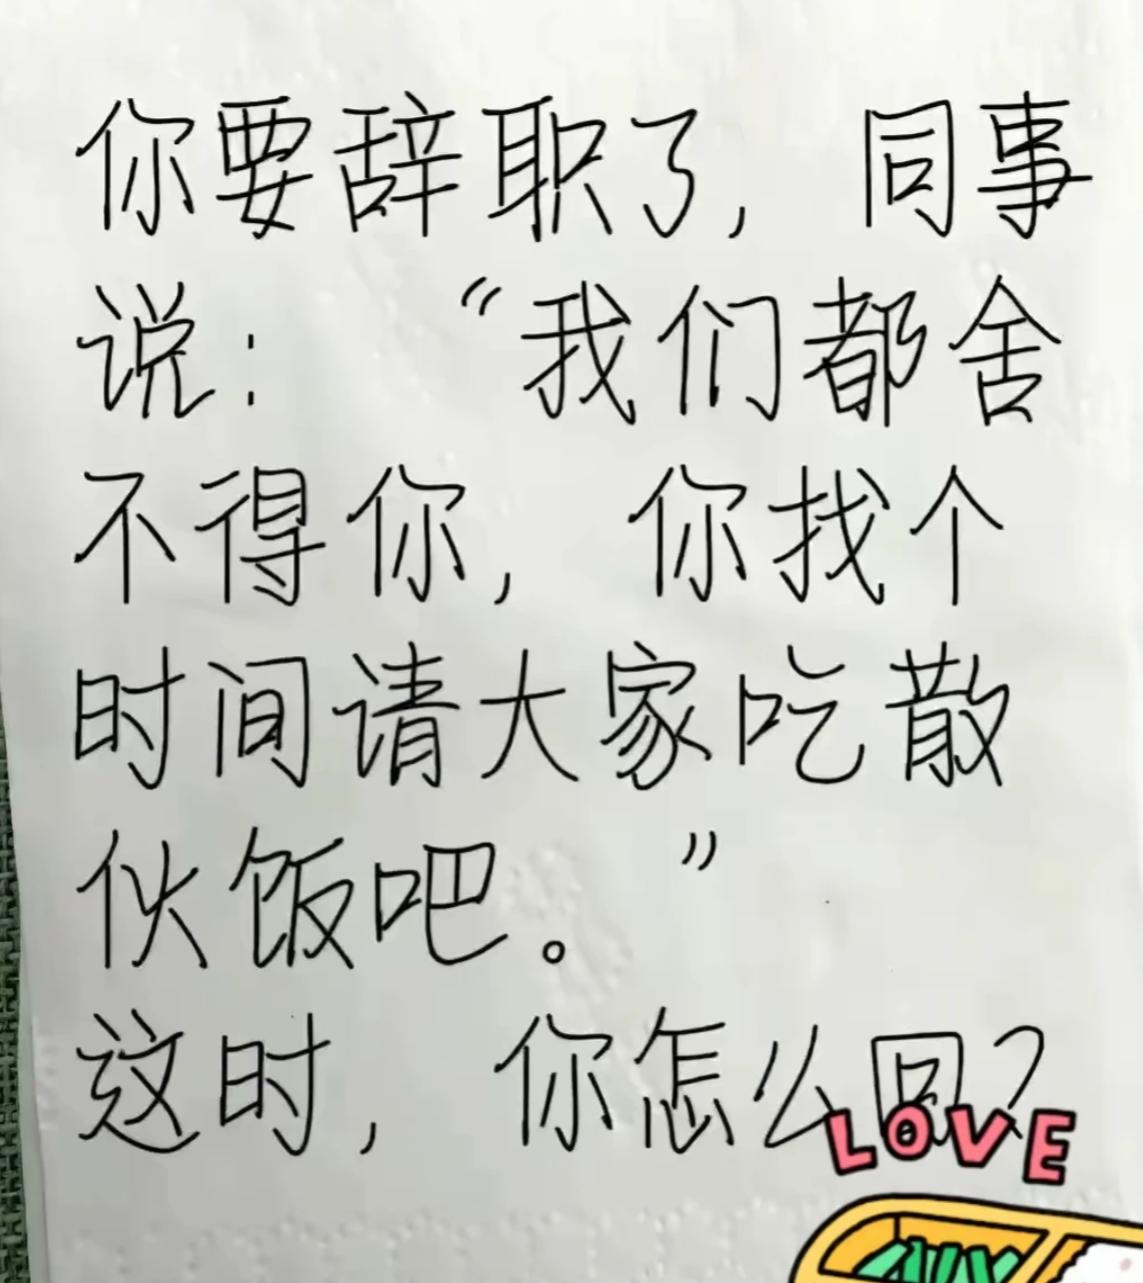 你要辞职了，同事
说：“我们都舍
不得你，你找个
时间请大家吃散
伙饭吧。”
这时，你怎么回？
LOVE